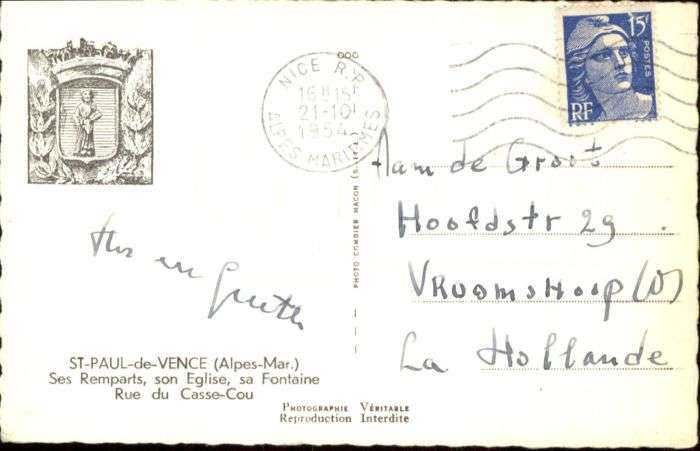 15F
POSTES
RF
NICE R.P.
16H15
21-10
1954
ALPES MARITIMES
Fam de Groot
Hoofdstr 29.
Vroomshoop (O)
La Hollande
PHOTO COMBIER MACON
ST-PAUL-de-VENCE (Alpes-Mar.)
Ses Remparts, son Eglise, sa Fontaine
Rue du Casse-Cou
PHOTOGRAPHIE VÉRITABLE
Reproduction Interdite